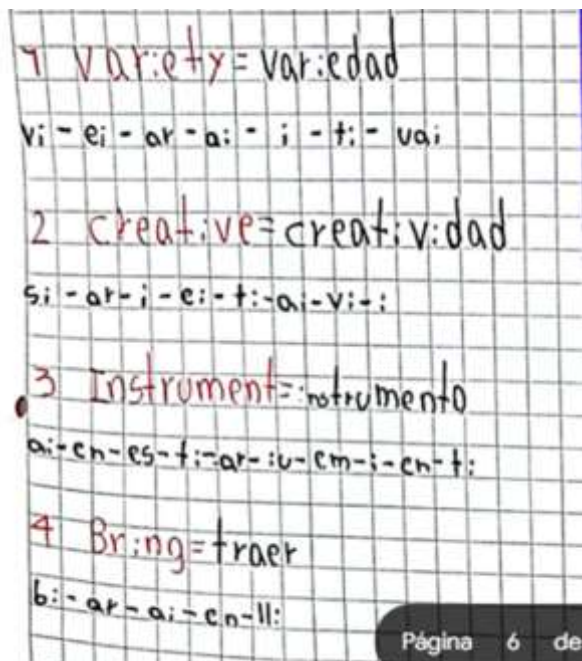 1 variety = variedad
vi - ei - ar - ai - i - ti - uai
2 creative = creatividad
si - ar - i - ei - ti - ai - vi - i
3 Instrument = instrumento
ai - en - es - ti - ar - iu - em - i - en - ti
4 Bring = traer
bi - ar - ai - en - lli
Página 6 de